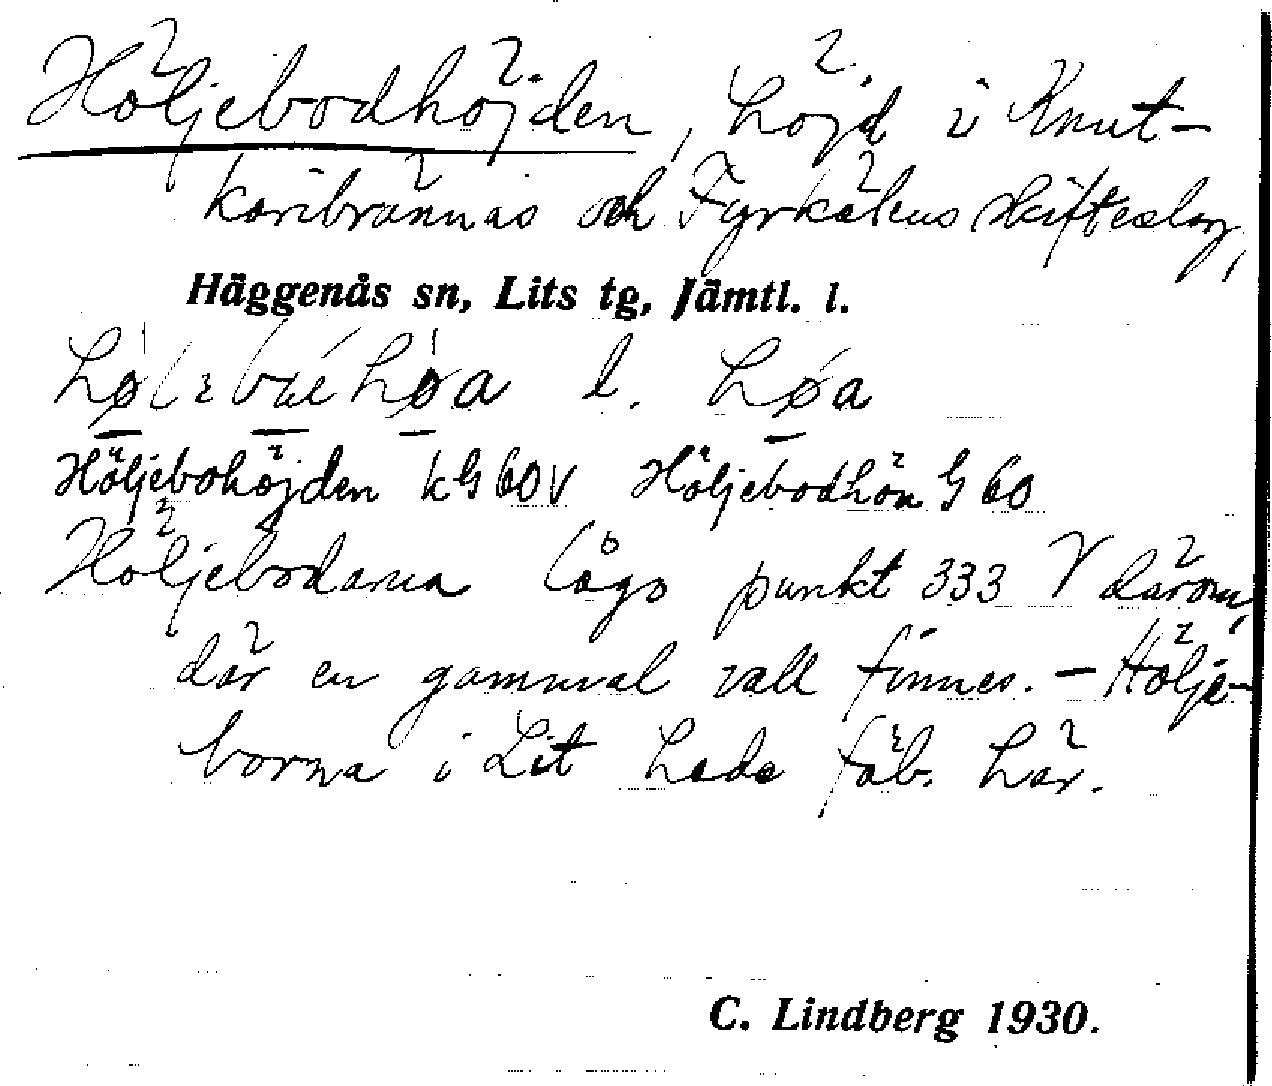 Höljebodhöjden, höjd i Knut-
karibrännas och Fyrkälens skifteslag,
Häggenås sn, Lits tg, Jämtl. l.
l. høa
Höljebohöjden kG60V Höljebodhön G60
Höljebodarna lågo punkt 333 V därom,
där en gammal vall finnes. - Hölje-
borna i Lit hade fäb. här.
C. Lindberg 1930.